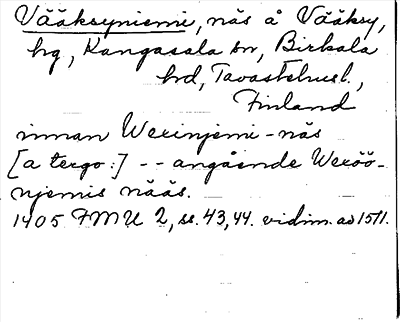 Vääksyniemi, näs å Vääksy,
hg, Kangasala sn, Birkala
hd, Tavastehusl.,
Finland
innan Wexinjemi-näs
[a tergo:] -- angående Wexöö-
njemis nääs.
1405 FMU 2, ss. 43, 44. vidim. av 1511.